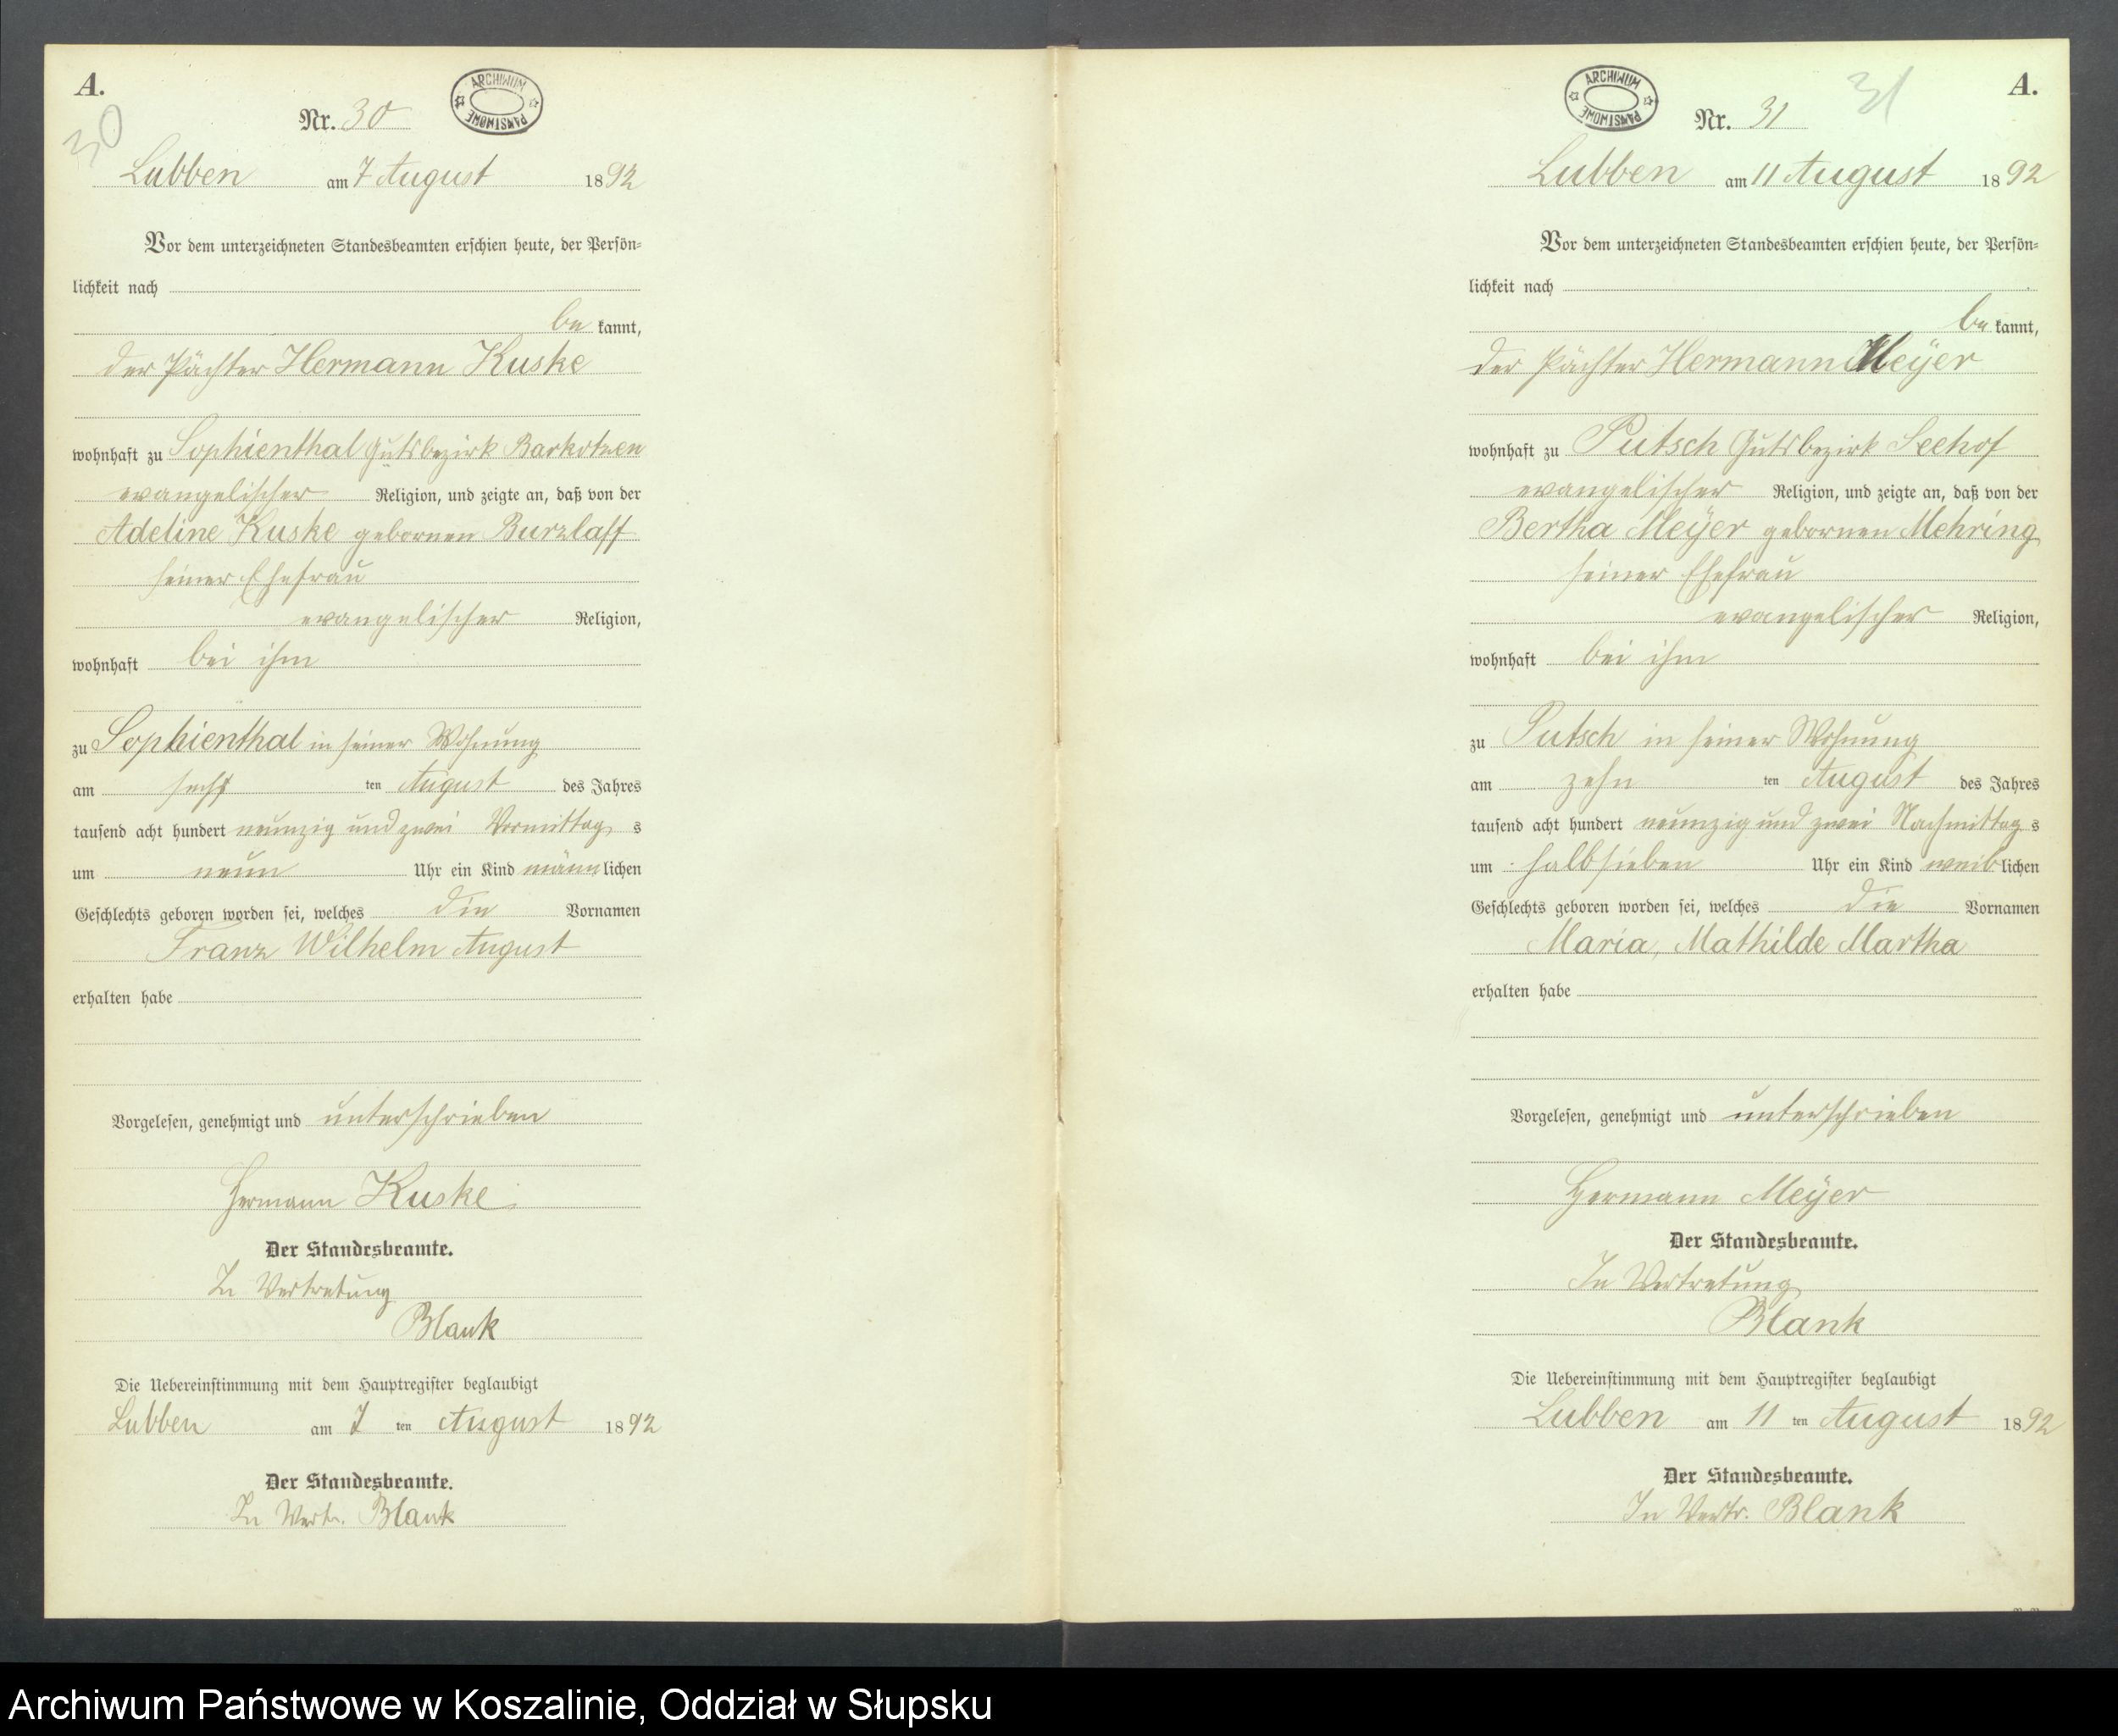 A.
30
Nr. 30
ARCHIWUM PAŃSTWOWE
Lubben am 7 August 1892
Vor dem unterzeichneten Standesbeamten erschien heute, der Persön=
lichkeit nach
be kannt,
der Pächter Hermann Kuske
wohnhaft zu Sophienthal Gutsbezirk Barkotzen
evangelischer Religion, und zeigte an, daß von der
Adeline Kuske gebornen Burzlaff
seiner Ehefrau
evangelischer Religion,
wohnhaft bei ihm
zu Sophienthal in seiner Wohnung
am sechs ten August des Jahres
tausend acht hundert neunzig und zwei Vormittag s
um neun Uhr ein Kind männ lichen
Geschlechts geboren worden sei, welches die Vornamen
Franz Wilhelm August
erhalten habe
Vorgelesen, genehmigt und unterschrieben
Hermann Kuske
Der Standesbeamte.
In Vertretung
Blank
Die Uebereinstimmung mit dem Hauptregister beglaubigt
Lubben am 7 ten August 1892
Der Standesbeamte.
In Vertr. Blank
A.
31
ARCHIWUM PAŃSTWOWE
Nr. 31
Lubben am 11 August 1892
Vor dem unterzeichneten Standesbeamten erschien heute, der Persön=
lichkeit nach
be kannt,
der Pächter Hermann Meÿer
wohnhaft zu Putsch Gutsbezirk Seehof
evangelischer Religion, und zeigte an, daß von der
Bertha Meÿer gebornen Mehring
seiner Ehefrau
evangelischer Religion,
wohnhaft bei ihm
zu Putsch in seiner Wohnung
am zehn ten August des Jahres
tausend acht hundert neunzig und zwei Nachmittag s
um halb sieben Uhr ein Kind weib lichen
Geschlechts geboren worden sei, welches die Vornamen
Maria, Mathilde Martha
erhalten habe
Vorgelesen, genehmigt und unterschrieben
Hermann Meÿer
Der Standesbeamte.
In Vertretung
Blank
Die Uebereinstimmung mit dem Hauptregister beglaubigt
Lubben am 11 ten August 1892
Der Standesbeamte.
In Vertr. Blank
Archiwum Państwowe w Koszalinie, Oddział w Słupsku